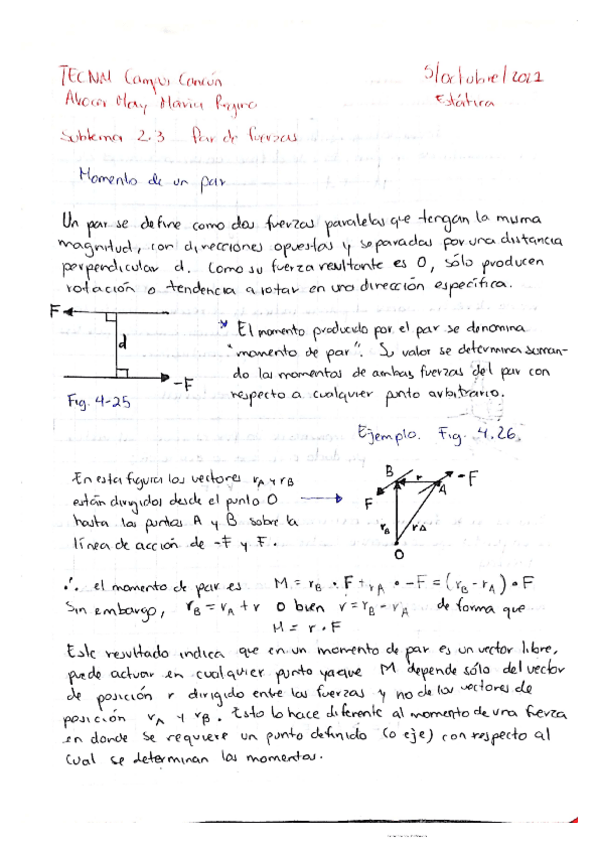 TECNM Campus Cancún
5/octubre/2022
Estática
Subtema 2.3 Par de fuerzas
Momento de un par
Un par se define como dos fuerzas paralelas que tengan la misma
magnitud, con direcciones opuestas y separadas por una distancia
perpendicular d. Como su fuerza resultante es 0, sólo producen
rotación o tendencia a rotar en una dirección específica.
F
d
-F
Fig. 4-25
* El momento producido por el par se denomina
"momento de par". Su valor se determina suman-
do los momentos de ambas fuerzas del par con
respecto a cualquier punto arbitrario.
Ejemplo. Fig. 4.26.
En esta figura los vectores rA y rB
están dirigidos desde el punto O
hasta los puntos A y B sobre la
línea de acción de -F y F.
B r -F
F A
rB rA
O
∴ el momento de par es M = rB · F + rA · -F = (rB - rA) · F
Sin embargo, rB = rA + r o bien r = rB - rA de forma que
M = r · F
Este resultado indica que en un momento de par es un vector libre,
puede actuar en cualquier punto ya que M depende sólo del vector
de posición r dirigido entre las fuerzas y no de los vectores de
posición rA y rB. Esto lo hace diferente al momento de una fuerza
en donde se requiere un punto definido (o eje) con respecto al
cual se determinan los momentos.